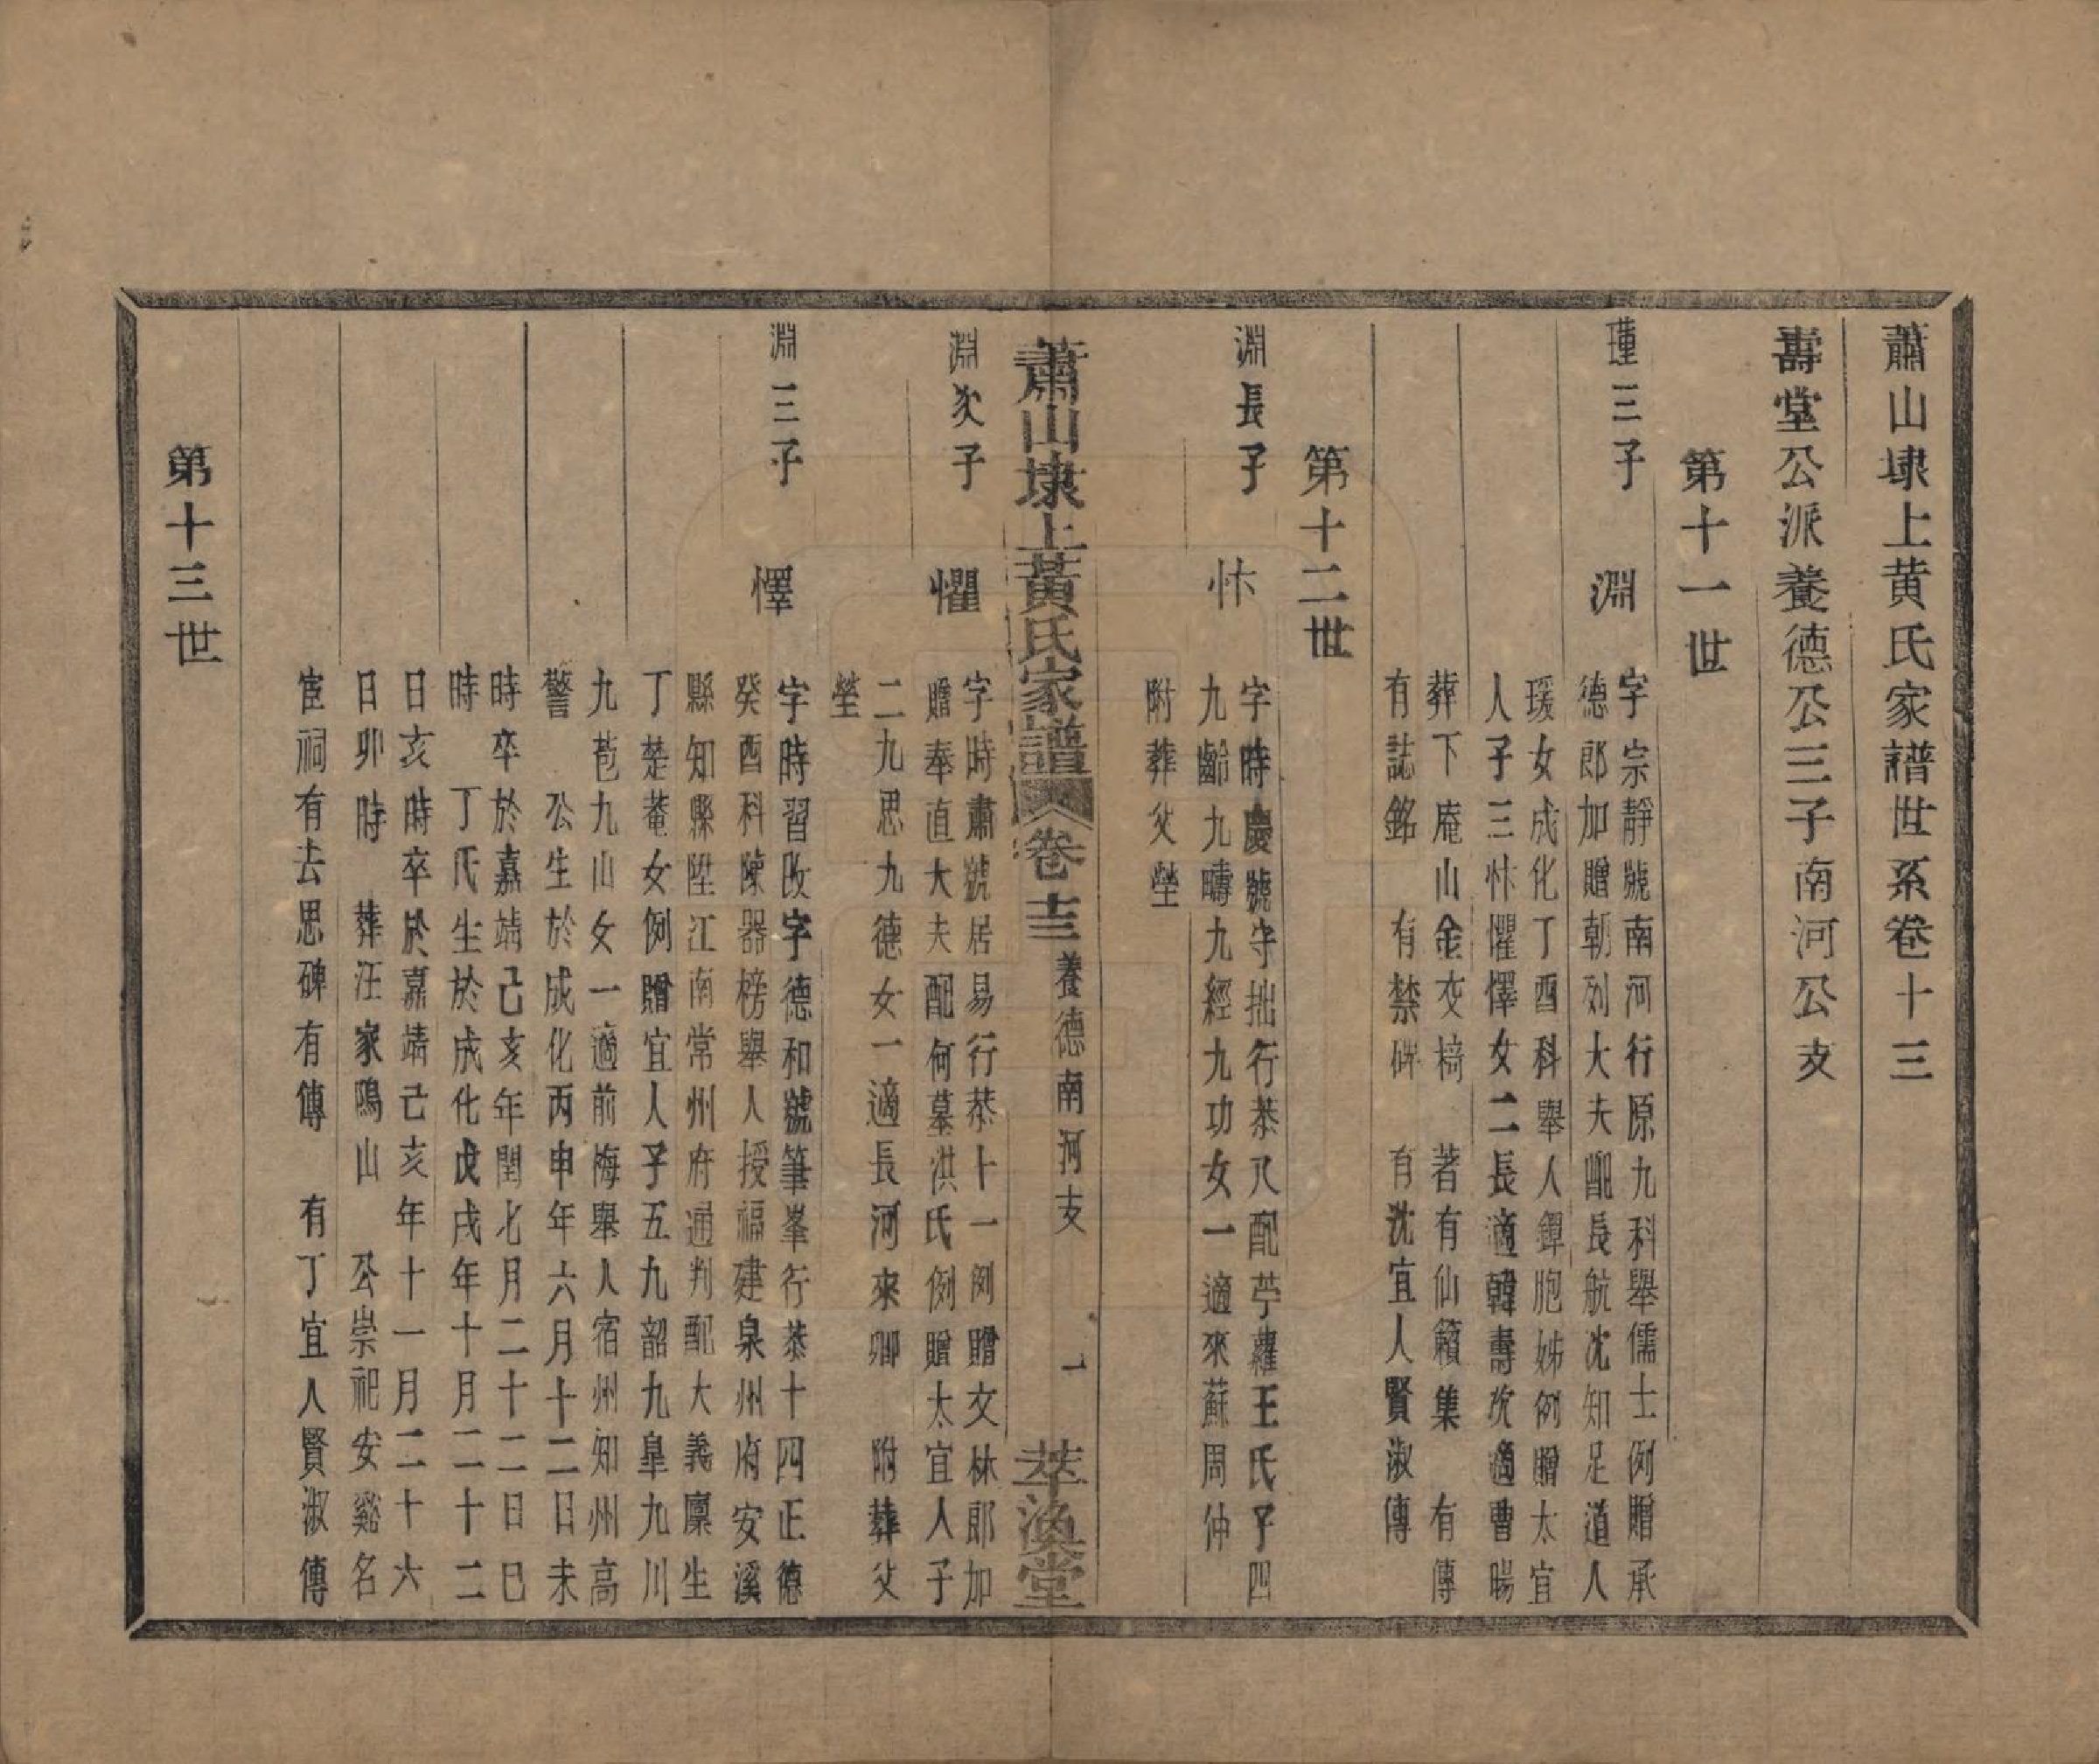 蕭山埭上黄氏家譜世系卷十三
壽堂公派養德公三子南河公支
第十一世
瑾三子 淵
字宗靜號南河行原九科舉儒士例贈承
德郎加贈朝列大夫配長航沈知足道人
瑗女成化丁酉科舉人鐔胞姊例贈太宜
人子三忭懼懌女二長適韓壽次適曹暘
葬下庵山金交椅 著有仙籟集 有傳
有誌銘 有禁碑 有沈宜人賢淑傳
第十二世
淵長子 忭
字時慶號守拙行恭八配苧蘿王氏子四
九齡九疇九經九功女一適來蘇周仲
附葬父塋
蕭山埭上黃氏家譜 卷十三 養德南河支 一 萃渙堂
淵次子 懼
字時肅號居易行恭十一例贈文林郎加
贈奉直大夫配何墓洪氏例贈太宜人子
二九思九德女一適長河來卿 附葬父
塋
淵三子 懌
字時習改字德和號筆峯行恭十四正德
癸酉科陳器榜舉人授福建泉州府安溪
縣知縣陞江南常州府通判配大義廩生
丁楚菴女例贈宜人子五九韶九臯九川
九苞九山女一適前梅舉人宿州知州高
警 公生於成化丙申年六月十二日未
時卒於嘉靖己亥年閏七月二十二日巳
時 丁氏生於成化戊戌年十月二十二
日亥時卒於嘉靖己亥年十一月二十六
日卯時 葬汪家鳴山 公崇祀安谿名
宦祠有去思碑有傳 有丁宜人賢淑傳
第十三世